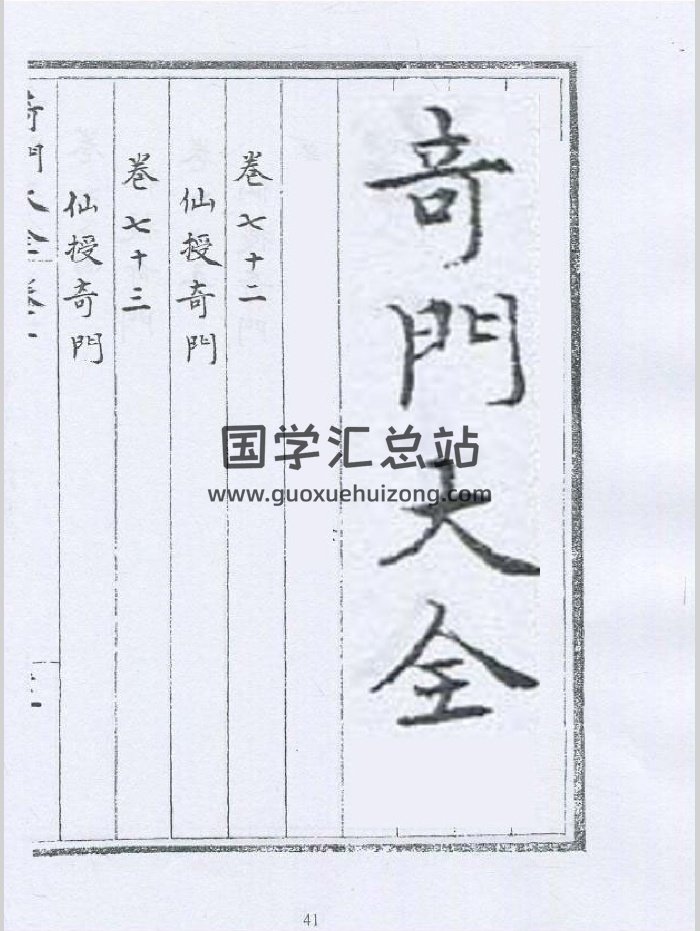 奇門大全
卷七十二
仙授奇門
卷七十三
仙授奇門
奇門大全卷
国学汇总站
www.guoxuehuizong.com
41